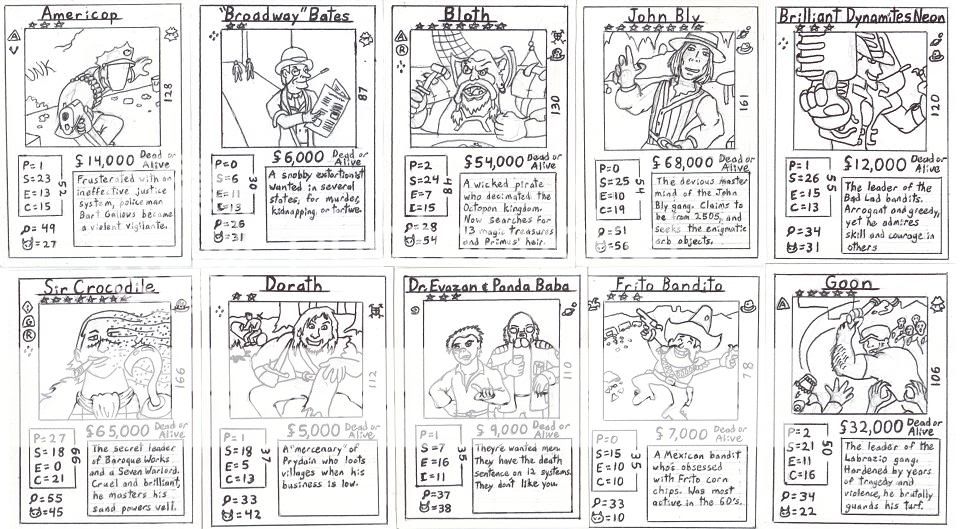 Americop
128
P=1
S=23
E=13
C=15
52
$14,000 Dead or Alive
Frusterated with an
ineffective justice
system, police man
Bart Gallows became
a violent vigilante.
=49
=27
"Broadway" Bates
87
P=0
S=6
E=11
C=13
30
$6,000 Dead or Alive
A snobby extortionist
wanted in several
states, for murder,
kidnapping, or torture.
=26
=31
Bloth
R
130
P=2
S=24
E=7
C=15
48
$54,000 Dead or Alive
A wicked pirate
who decimated the
Octopon kingdom.
Now searches for
13 magic treasures
and Primus' heir.
=28
=54
John Bly
161
P=0
S=25
E=10
C=19
54
$68,000 Dead or Alive
The devious master
mind of the John
Bly gang. Claims to
be from 2505, and
seeks the enigmatic
orb objects.
=51
=56
Brilliant Dynamites Neon
120
P=1
S=26
E=15
C=13
55
$12,000 Dead or Alive
The leader of the
Bad Lad bandits.
Arrogant and greedy,
yet he admires
skill and courage in
others
=34
=31
Sir Crocodile
G
R
166
P=27
S=18
E=0
C=21
66
$65,000 Dead or Alive
The secret leader
of Baroque Works
and a Seven Warlord.
Cruel and brilliant,
he masters his
sand powers well.
=55
=45
Dorath
112
P=1
S=18
E=5
C=13
37
$5,000 Dead or Alive
A "mercenary" of
Prydain who loots
villages when his
business is low.
=33
=42
Dr. Evazan & Panda Baba
110
P=1
S=7
E=16
C=11
35
$9,000 Dead or Alive
They're wanted men.
They have the death
sentence on 12 systems.
They don't like you.
=37
=38
Frito Bandito
78
P=0
S=15
E=10
C=10
35
$7,000 Dead or Alive
A Mexican bandit
who's obsessed
with Frito corn
chips. Was most
active in the 60's.
=33
=10
Goon
106
P=2
S=21
E=11
C=16
50
$32,000 Dead or Alive
The leader of the
Labrazio gang.
Hardened by years
of tragedy and
violence, he brutally
guards his turf.
=34
=22